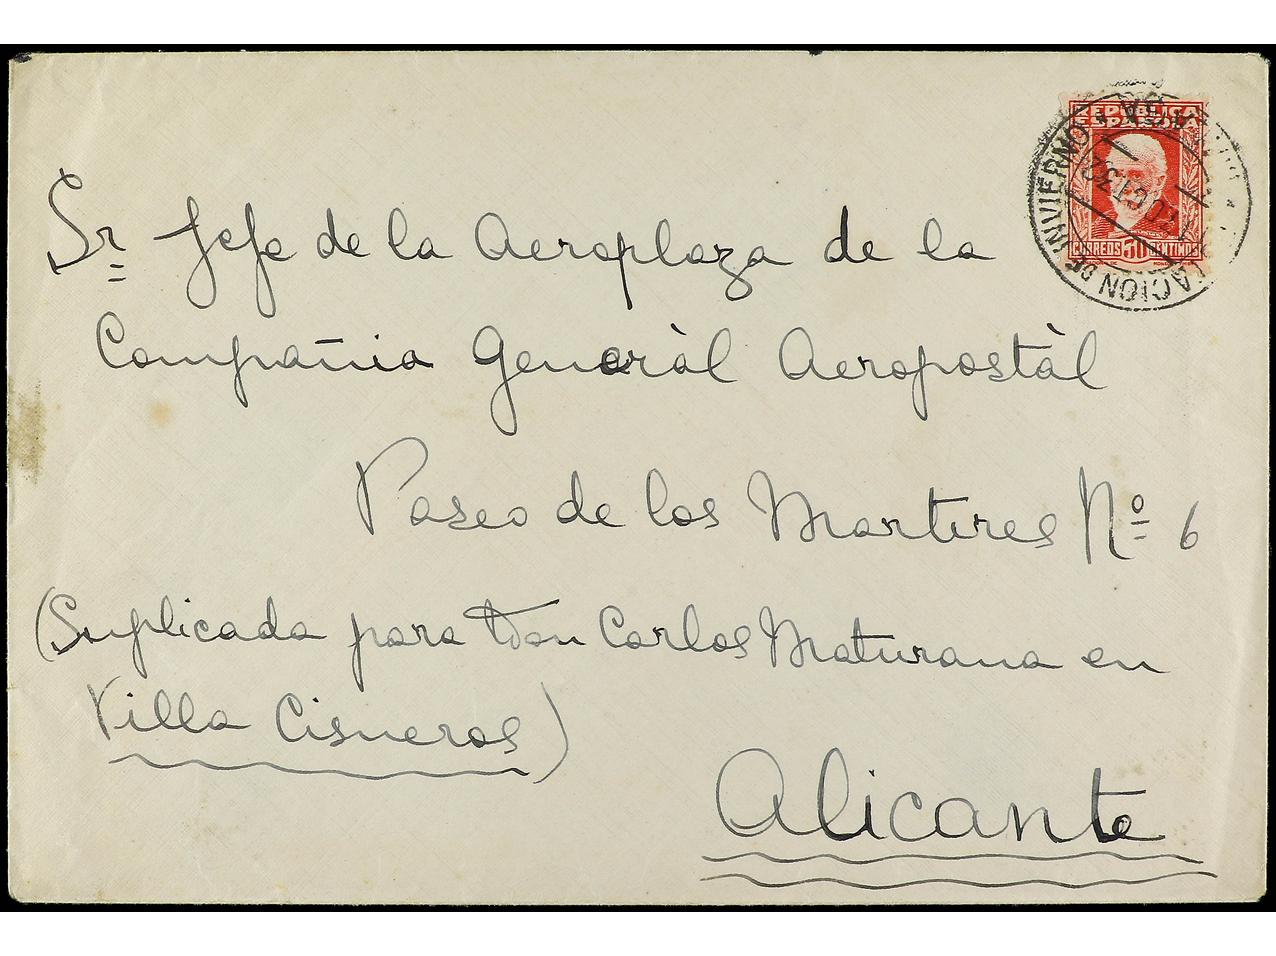 REPUBLICA
ESPAÑOLA
CORREOS 30 CENTIMOS
ESTACION DE INVIERNO MALAGA
OCT 32
Sr Jefe de la Aeroplaza de la
Compañia Generàl Aeropostàl
Paseo de los Martires Nº 6
(Suplicada para Don Carlos Maturana en
Villa Cisneros)
Alicante